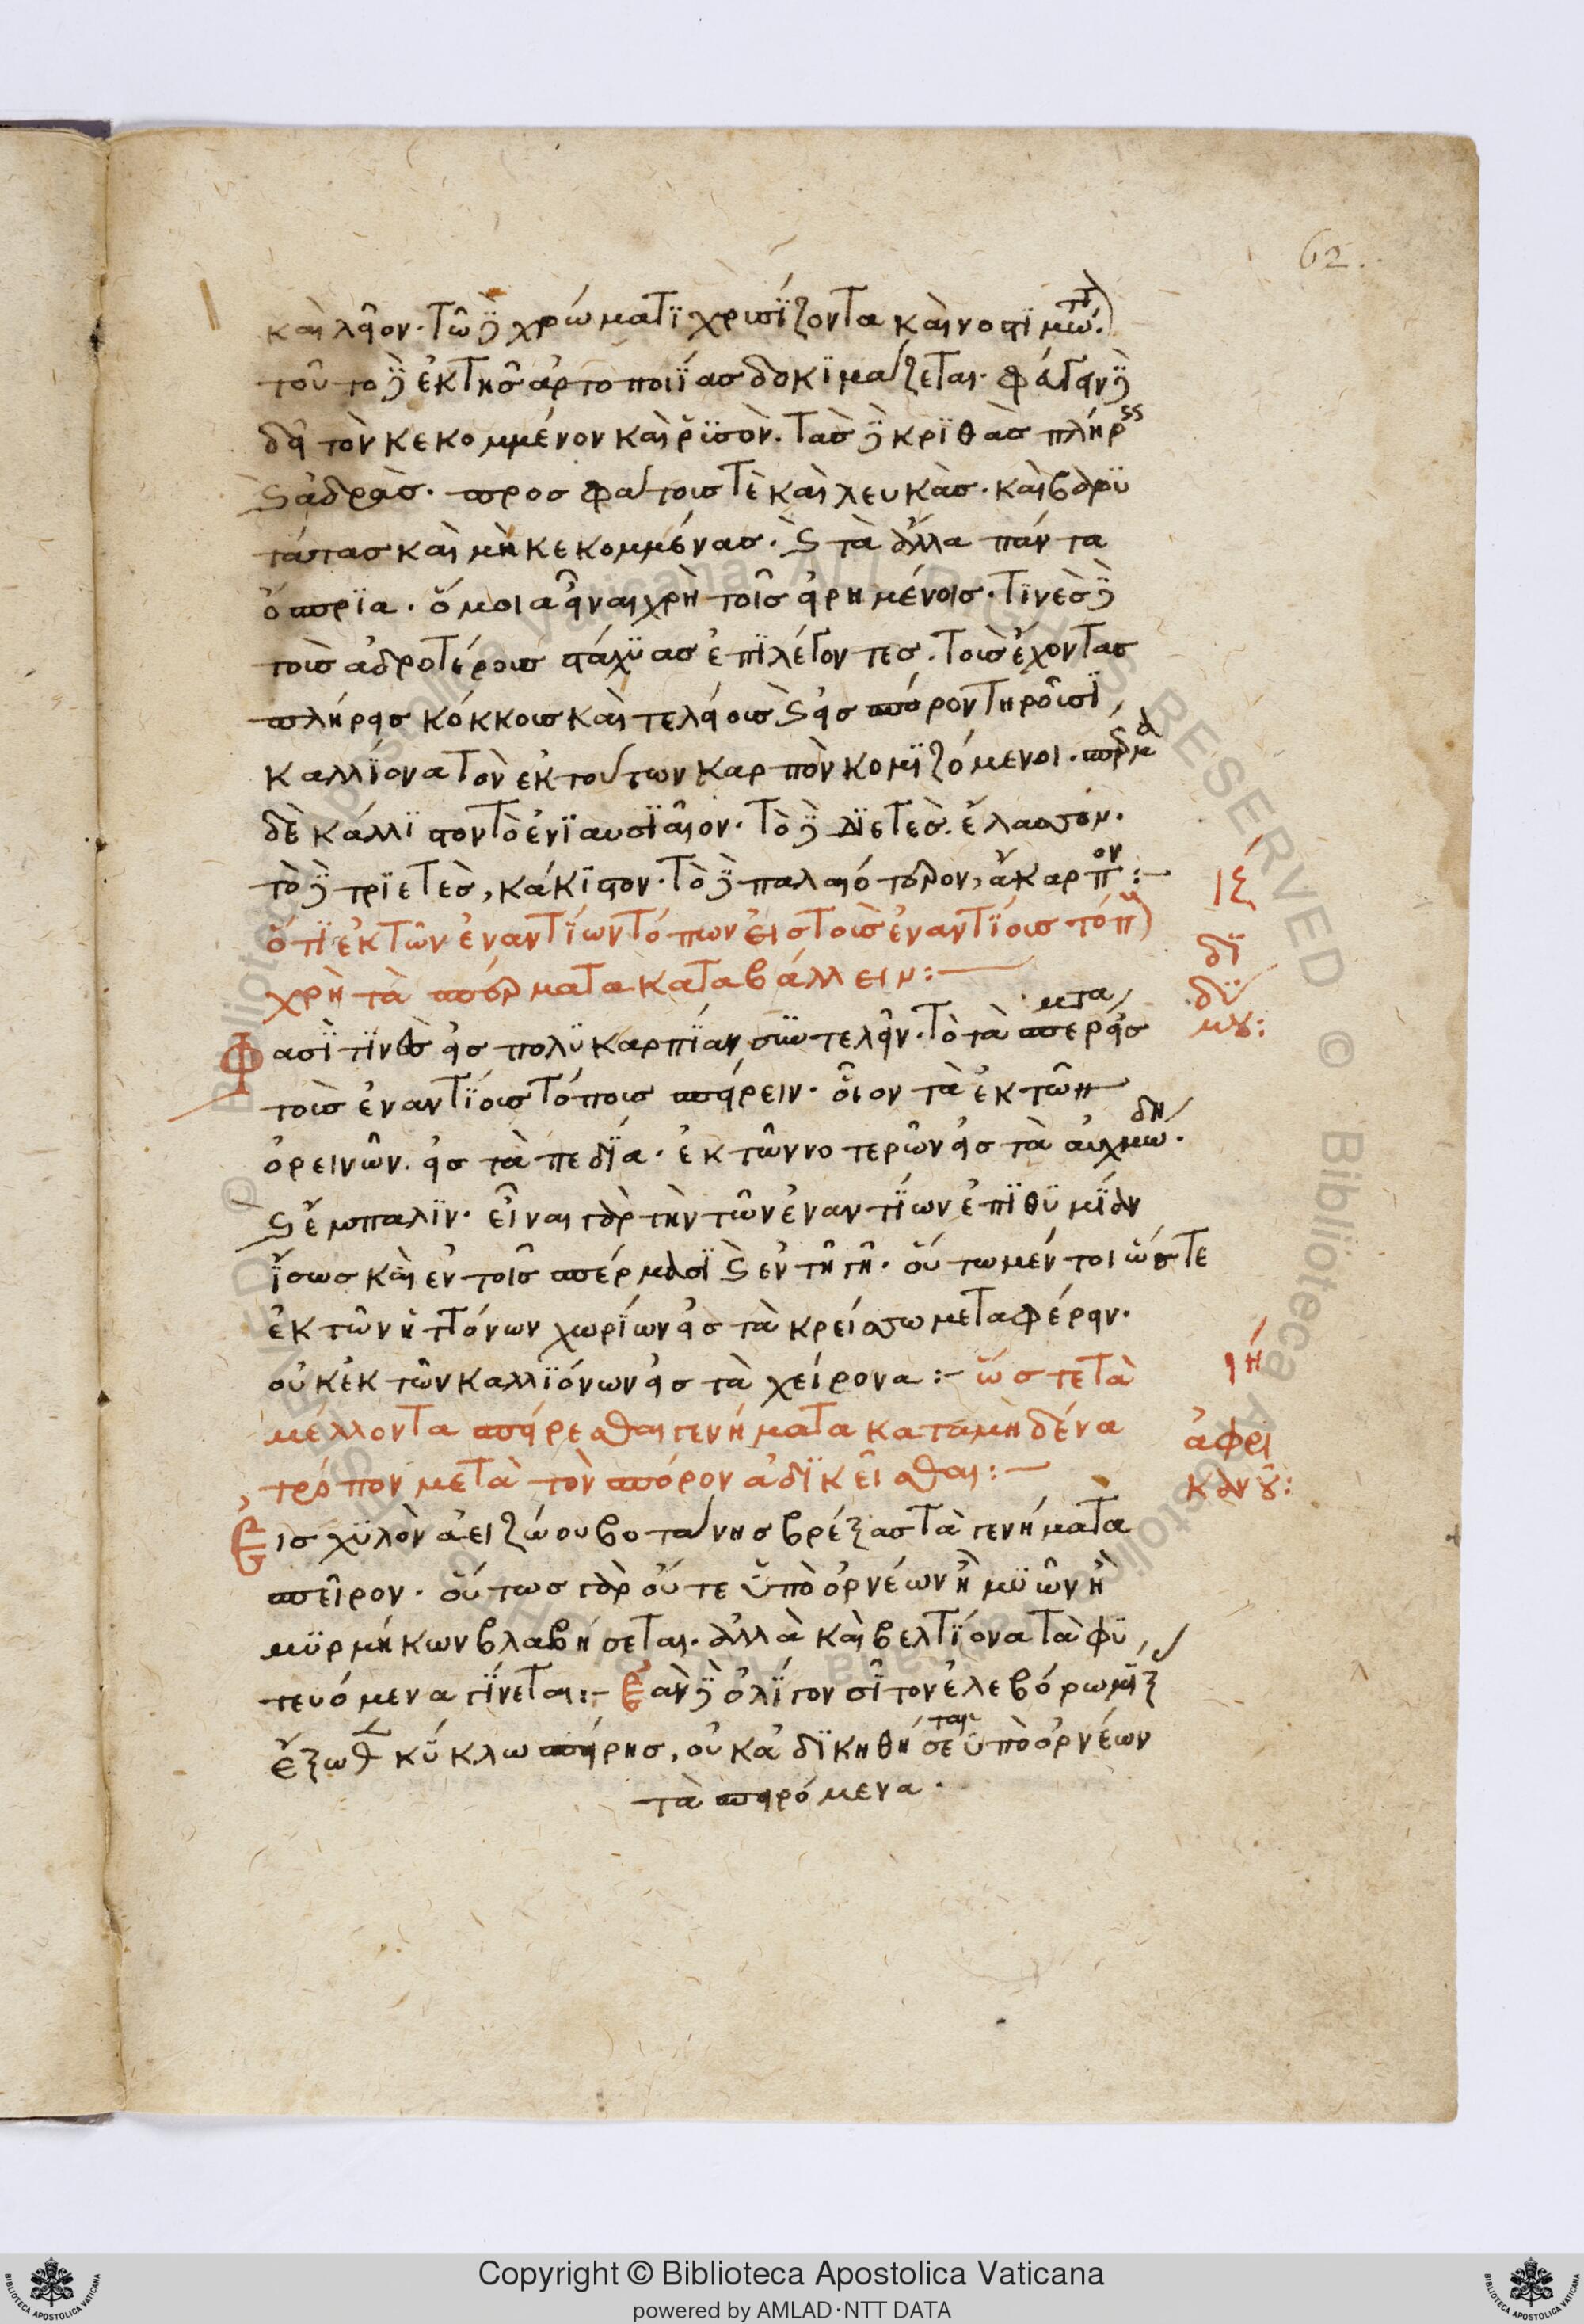 62.
καὶ λεῖον. τῶ δὲ χρώματι χρυσίζοντα καὶ νοστιμώτατον.
τοῦτο δὲ ἐκ τῆς ἀρτοποιΐας δοκιμάζεται. φάγειν δὲ
δεῖ τὸν κεκομμένον καὶ ῥϋσὸν. τὰς δὲ κριθὰς πλήρεις
καὶ ἀδρὰς. προσφάτους τὲ καὶ λευκὰς. καὶ βαρυ
τάτας καὶ μὴ κεκομμένας. καὶ τὰ ἄλλα πάντα
ὄσπρια. ὅμοια εἶναι χρὴ τοῖς εἰρημένοις. τινὲς δὲ
τοὺς ἀδροτέρους στάχυας ἐπιλέγοντες. τοὺς ἔχοντας
πλήρεις κόκκους καὶ τελείους καὶ εἰς σπόρον τηροῦσι,
καλλίονα τὸν ἐκ τούτων καρπὸν κομιζόμενοι. σπέρμα
δὲ κάλλιστον τὸ ἐνιαυσιαῖον. τὸ δὲ διετὲς. ἔλασσον.
τὸ δὲ τριετὲς, κάκιστον. τὸ δὲ παλαιότερον, ἄκαρπον:-
ὅτι ἐκ τῶν ἐναντίων τόπων εἰς τοὺς ἐναντίους τόπους
χρὴ τὰ σπέρματα καταβάλλειν:-
ιζ
δι
δύ
μου:
Φασὶ τινὲς εἰς πολυκαρπίαν συντελεῖν. τὸ τὰ σπέρματα εἰς
τοὺς ἐναντίους τόπους σπείρειν. οἷον τὰ ἐκ τῶν
ὀρεινῶν. εἰς τὰ πεδία. ἐκ τῶν νοτερῶν εἰς τὰ αὐχμώδη.
καὶ ἔμπαλιν. εἶναι γὰρ τὴν τῶν ἐναντίων ἐπιθυμίαν
ἴσως καὶ ἐν τοῖς σπέρμασι καὶ ἐν τῆ γῆ. οὕτω μέν τοι ὥστε
ἐκ τῶν ἡττόνων χωρίων εἰς τὰ κρείσσω μεταφέρειν.
οὐκ ἐκ τῶν καλλιόνων εἰς τὰ χείρονα:- ὥστε τὰ
μέλλοντα σπείρεσθαι γενήματα κατὰ μηδένα
τρόπον μετὰ τὸν σπόρον ἀδικεῖσθαι:-
ιή
ἀφρι
κανοῦ:
Εἰς χυλὸν ἀειζώου βοτάνης βρέξας τὰ γενήματα
σπεῖρον. οὕτως γὰρ οὔτε ὑπὸ ὀρνέων ἢ μυῶν ἢ
μυρμήκων βλαβήσεται. ἀλλὰ καὶ βελτίονα τὰ φυ
τευόμενα γίνεται:- Ἐὰν δὲ ὀλίγον σῖτον ἐλεβόρω μίξας
ἔξωθεν κύκλω σπείρης, οὐκ ἀδικηθήσεται ὑπὸ ὀρνέων
τὰ σπειρόμενα.
Copyright © Biblioteca Apostolica Vaticana
powered by AMLAD·NTT DATA